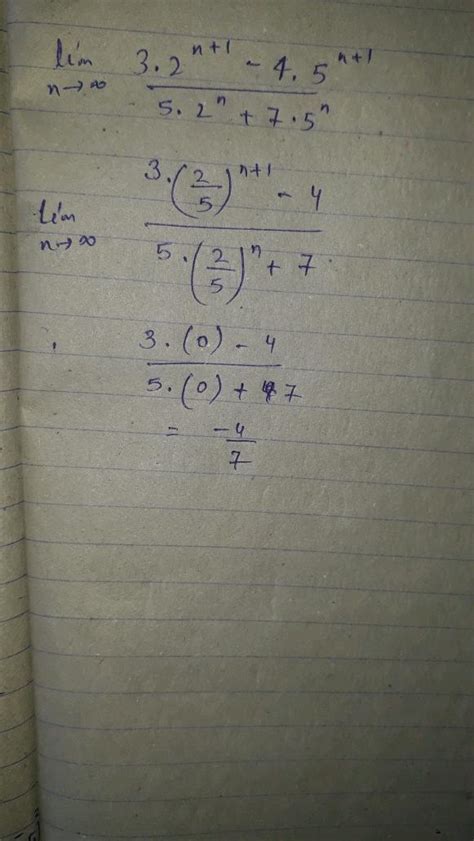 lim n→∞ (3·2^(n+1) - 4·5^(n+1)) / (5·2^n + 7·5^n)
lim n→∞ (3·(2/5)^(n+1) - 4) / (5·(2/5)^n + 7)
(3·(0) - 4) / (5·(0) + 7)
= -4/7